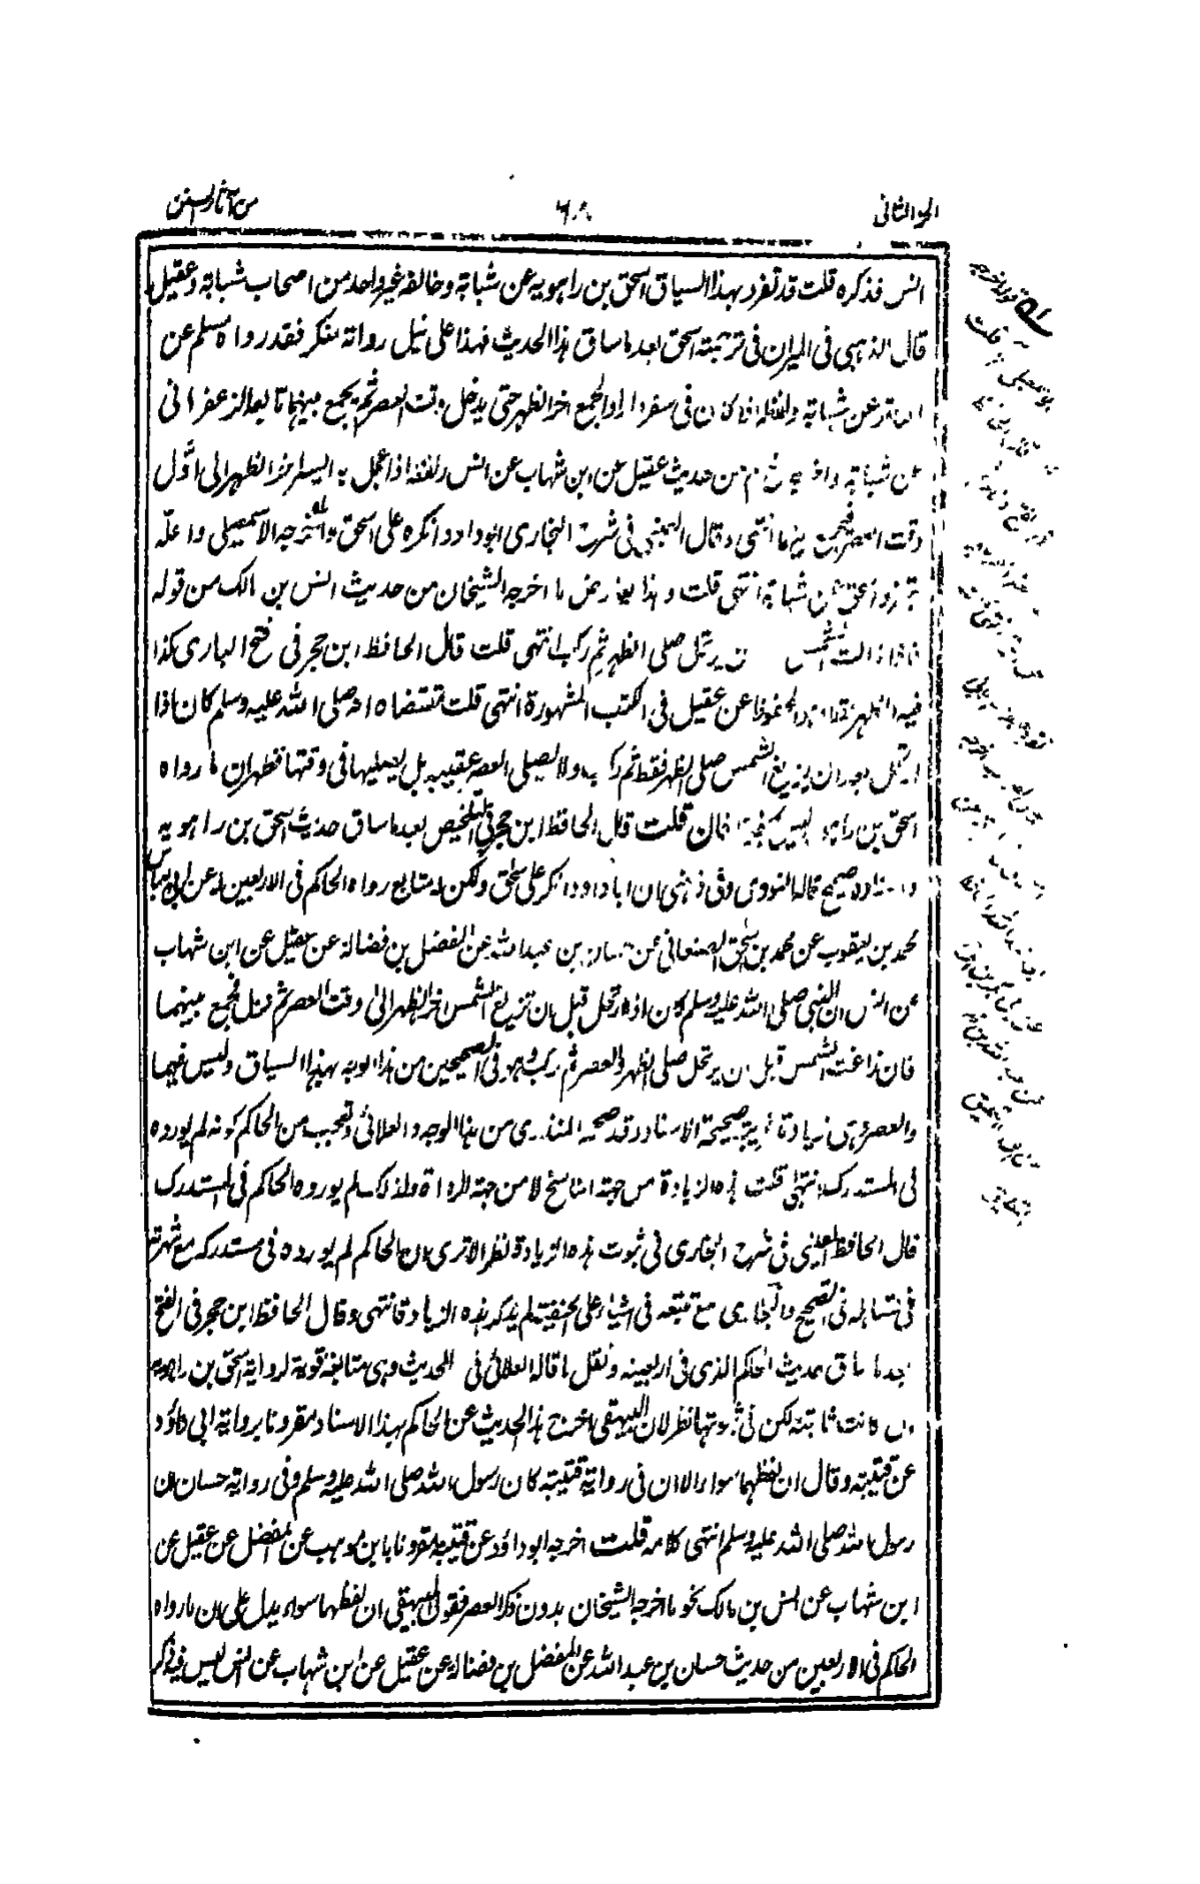 الجزء الثاني
٦٠٨
من آثار السنن
انس فذكره قلت قد تفرد بهذا السياق اسحق بن راهويه عن شبابة وخالفه غير واحد من اصحاب شبابة وعقيل
قال الذهبي في الميزان في ترجمته اسحق بعد ما ساق هذا الحديث فهذا على نبل رواته منكر فقد رواه مسلم عن
الناقد عن شبابة ولفظه اذا كان في سفر واراد الجمع اخر الظهر حتى يدخل وقت العصر ثم يجمع بينهما تابعه الزعفراني
عن شبابة واخرجه من حديث عقيل عن ابن شهاب عن انس ولفظه اذا عجل به السير اخر الظهر الى اول
وقت العصر فيجمع بينهما انتهى وقال العيني في شرح البخاري ابو داود انكره على اسحق واخرجه الاسمعيلي واعله
بتفرد اسحق عن شبابة انتهى قلت وهذا يعارض ما اخرجه الشيخان من حديث انس بن مالك من قوله
فاذا زالت الشمس يرتحل صلى الظهر ثم ركب انتهى قلت قال الحافظ ابن حجر في فتح الباري كذا
فيه الظهر فقط وهو المحفوظ عن عقيل في الكتب المشهورة انتهى قلت مقتضاه انه صلى الله عليه وسلم كان اذا
ارتحل بعد ان يزيغ الشمس صلى الظهر فقط ثم ركب ولا يصلي العصر عقيبه بل يصليها في وقتها فظهر ان ما رواه
اسحق بن راهويه ليس فان قلت قال الحافظ ابن حجر في التلخيص بعد ما ساق حديث اسحق بن راهويه
واسناده صحيح قاله النووي وفي ذهني ان ابا داود انكره على اسحق ولكن له متابع رواه الحاكم في الاربعين له عن ابي العباس
محمد بن يعقوب عن محمد بن اسحق الصنعاني عن حسان بن عبد الله عن المفضل بن فضالة عن عقيل عن ابن شهاب
عن انس ان النبي صلى الله عليه وسلم كان اذا ارتحل قبل ان تزيغ الشمس اخر الظهر الى وقت العصر ثم نزل فجمع بينهما
فان زاغت الشمس قبل ان يرتحل صلى الظهر والعصر ثم ركب وهو في الصحيحين من هذا الوجه بهذا السياق وليس فيهما
والعصر وهي زيادة غريبة صحيحة الاسناد وقد صححه المنذري من هذا الوجه والعلائي وتعجب من الحاكم كونه لم يورده
في المستدرك انتهى قلت هذه الزيادة من جهة الناسخ لا من جهة الرواة ولذلك لم يورده الحاكم في المستدرك
قال الحافظ العيني في شرح البخاري في ثبوت هذه الزيادة نظر الا ترى ان الحاكم لم يورده في مستدركه مع شهرته
في تساهله في التصحيح والبخاري مع تتبعه في اشياء على الحنفية لم يذكر هذه الزيادة انتهى وقال الحافظ ابن حجر في الفتح
بعد ما ساق حديث الحاكم الذي في اربعينه ونقل ما قاله العلائي في الحديث وهي متابعة قوية لرواية اسحق بن راهويه
ان كانت ثابتة لكن في ثبوتها نظر لان البيهقي اخرج هذا الحديث عن الحاكم بهذا الاسناد مقرونا برواية ابي داؤد
عن قتيبة وقال ان لفظهما سواء الا ان في رواية قتيبة كان رسول الله صلى الله عليه وسلم وفي رواية حسان ان
رسول الله صلى الله عليه وسلم انتهى كلامه قلت اخرجه ابو داؤد عن قتيبة مقرونا بابن موهب عن المفضل عن عقيل عن
ابن شهاب عن انس بن مالك نحو ما اخرجه الشيخان بدون ذكر العصر فقول البيهقي ان لفظهما سواء يدل على ان ما رواه
الحاكم في الاربعين من حديث حسان بن عبد الله عن المفضل بن فضالة عن عقيل عن ابن شهاب عن انس ليس فيه ذكر